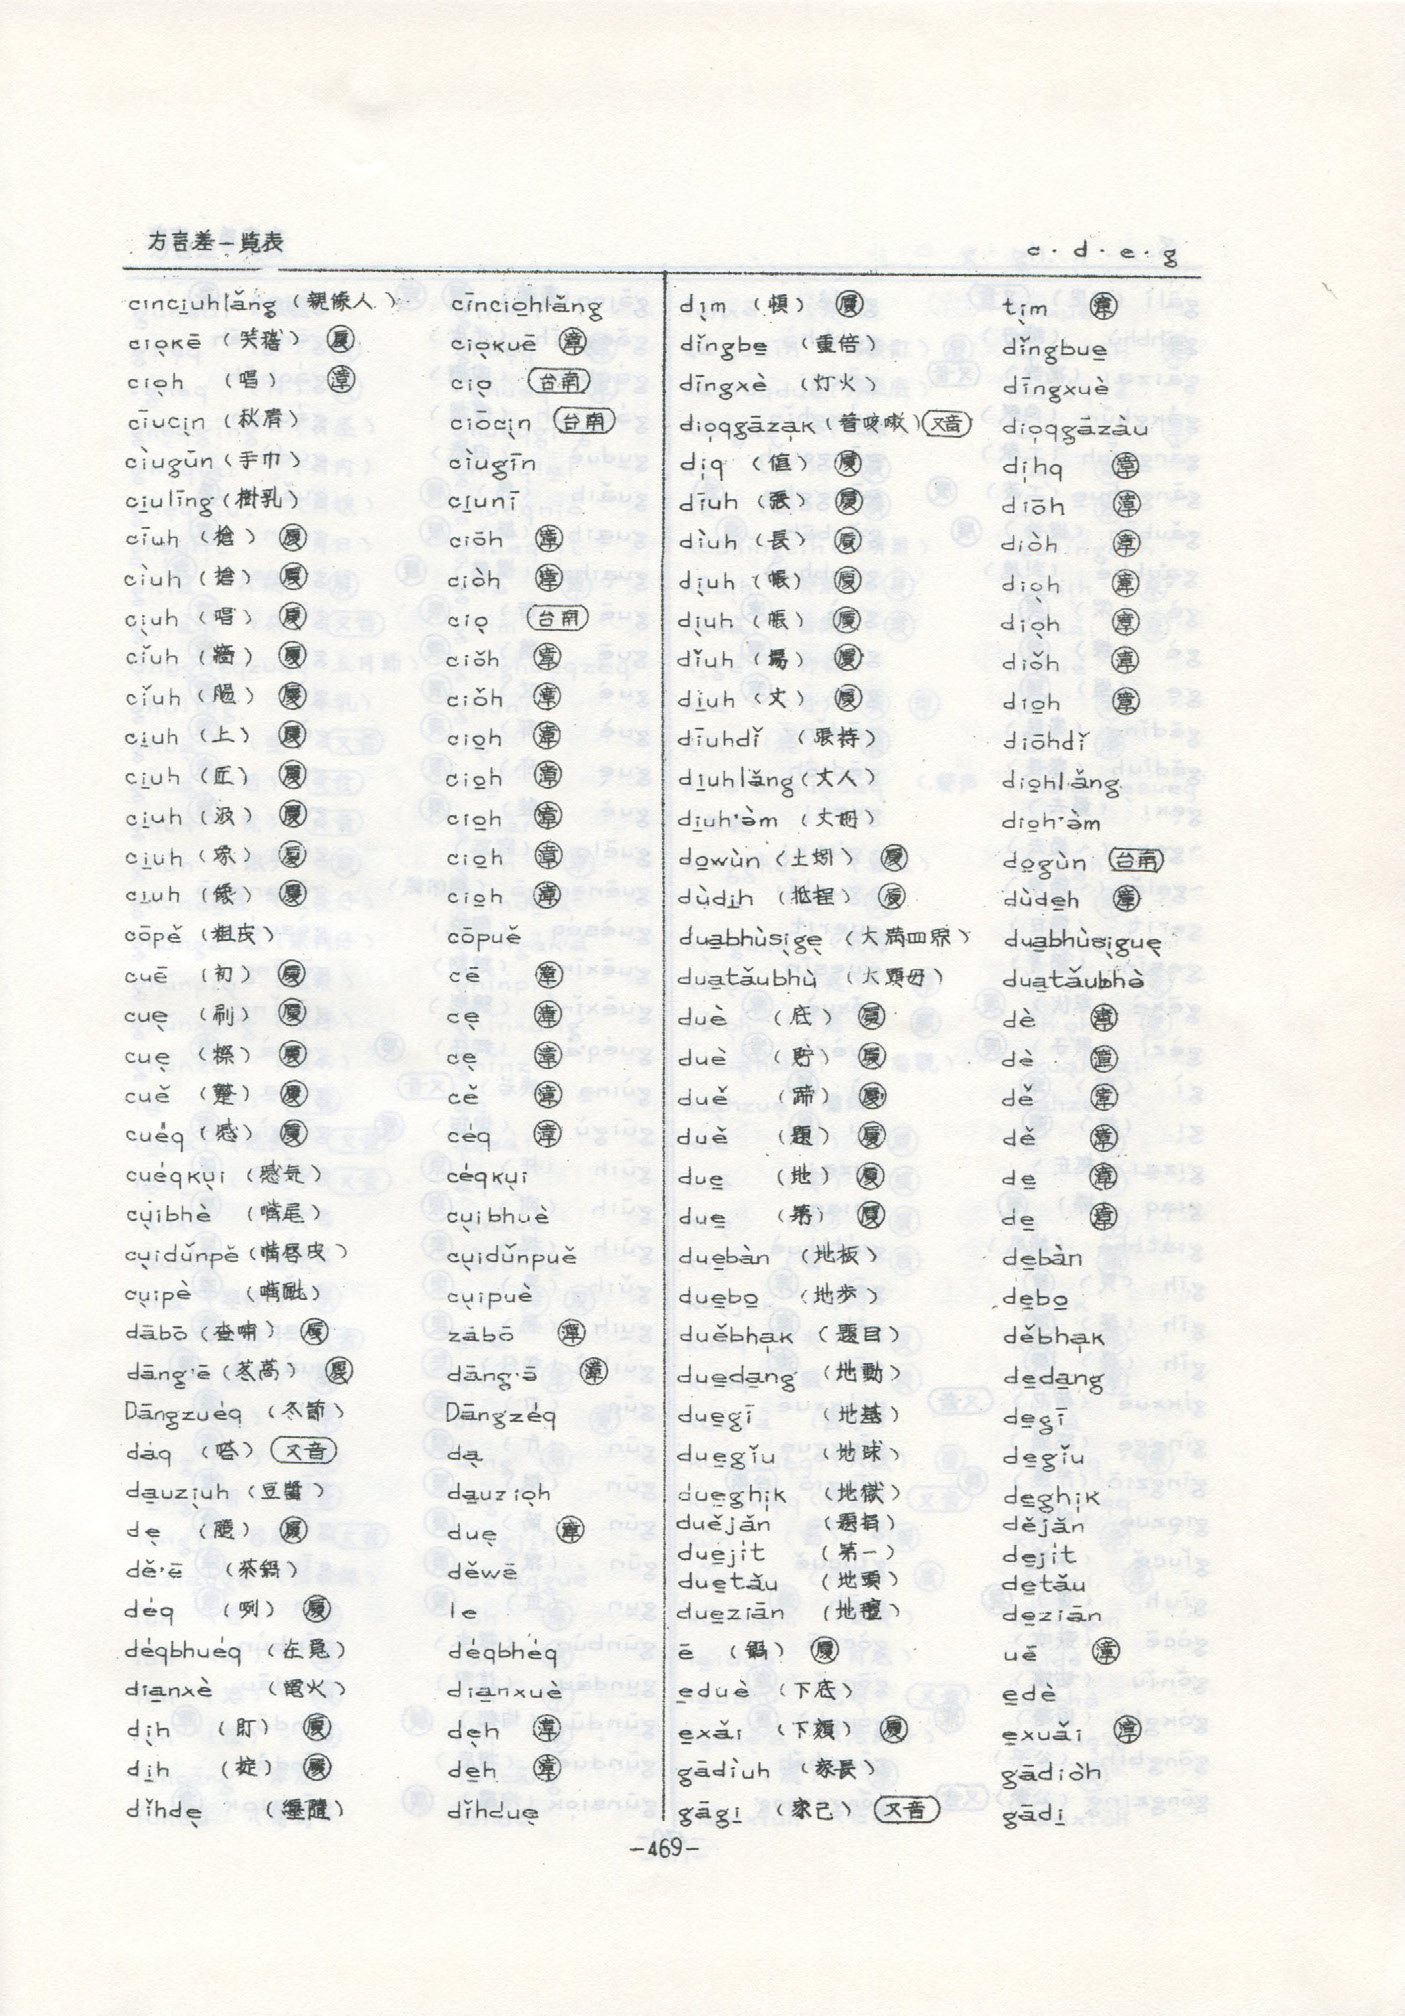 方言差一覧表
c · d · e · g
cīnci̱uhlăng （親像人） cīncio̱hlăng
ciọkē （笑詼） 厦 ciọkuē 漳
ciọh （唱） 漳 ciọ 台南
cīucịn （秋凊） ciōcịn 台南
cìugūn （手巾） cìugīn
ci̱ulīng （樹乳） ci̱unī
cīuh （槍） 厦 ciōh 漳
cìuh （搶） 厦 ciòh 漳
cịuh （唱） 厦 ciọ 台南
cǐuh （牆） 厦 ciǒh 漳
cǐuh 厦 ciǒh 漳
ci̱uh （上） 厦 cio̱h 漳
ci̱uh （匠） 厦 cio̱h 漳
ci̱uh 厦 cio̱h 漳
ci̱uh （象） 厦 cio̱h 漳
ci̱uh （像） 厦 cio̱h 漳
cōpě （粗皮） cōpuě
cuē （初） 厦 cē 漳
cuẹ （刷） 厦 cẹ 漳
cuẹ 厦 cẹ 漳
cuě 厦 cě 漳
cuéq （感） 厦 céq 漳
cuéqkụi （感気） céqkụi
cụibhè （嘴尾） cụibhuè
cụidǔnpě （嘴唇皮） cụidǔnpuě
cụipè （嘴䫌） cụipuè
dābō （査哺） 厦 zābō 漳
dāng·ē （苳萵） 厦 dāng·ō 漳
Dāngzuéq （冬節） Dāngzéq
dáq （嗒） 又音 dạ
da̱uzịuh （豆醬） da̱uziọh
dẹ 厦 duẹ 漳
dě·ē （茶鍋） děwē
déq （咧） 厦 le
déqbhuéq （在覓） déqbhéq
di̱anxè （電火） di̱anxuè
dịh （盯） 厦 dẹh 漳
di̱h （掟） 厦 de̱h 漳
dǐhdẹ （纏隨） dǐhduẹ
dịm （頓） 厦 tịm 漳
dǐngbe̱ （重倍） dǐngbue̱
dīngxè （灯火） dīngxuè
diọqgāzạk （着咳嗽） 又音 diọqgāzàu
dịq （値） 厦 dịhq 漳
dīuh （張） 厦 diōh 漳
dìuh （長） 厦 diòh 漳
dịuh （帳） 厦 diọh 漳
dịuh （脹） 厦 diọh 漳
dǐuh （場） 厦 diǒh 漳
di̱uh （丈） 厦 dio̱h 漳
dīuhdǐ （張持） diōhdǐ
di̱uhlăng （丈人） dio̱hlăng
di̱uh·èm （丈姆） dio̱h·èm
do̱wùn （土蚓） 厦 do̱gùn 台南
dùdi̱h （抵捏） 厦 dùde̱h 漳
dua̱bhùsịgẹ （大満四界） dua̱bhùsịguẹ
dua̱tǎubhù （大頭母） dua̱tǎubhè
duè （底） 厦 dè 漳
duè （貯） 厦 dè 漳
duě （蹄） 厦 dě 漳
duě （題） 厦 dě 漳
due̱ （地） 厦 de̱ 漳
due̱ （第） 厦 de̱ 漳
due̱bàn （地板） de̱bàn
due̱bo̱ （地歩） de̱bo̱
duěbhạk （題目） děbhạk
due̱da̱ng （地動） de̱da̱ng
due̱gī （地基） de̱gī
due̱gǐu （地球） de̱gǐu
due̱ghịk （地獄） de̱ghịk
duějǎn de̱jǎn
due̱jít （第一） de̱jít
due̱tǎu （地頭） de̱tǎu
due̱ziān （地氈） de̱ziān
ē （鍋） 厦 uē 漳
e̱duè （下底） e̱dè
e̱xǎi （下頦） 厦 e̱xuǎi 漳
gādìuh （家長） gādiòh
gāgi̱ （家己） 又音 gādi̱
−469−